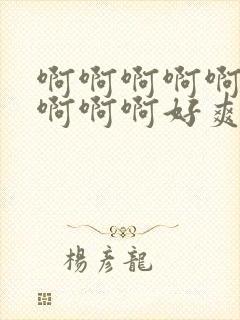 啊啊啊啊啊
啊啊啊好爽
楊彥龍